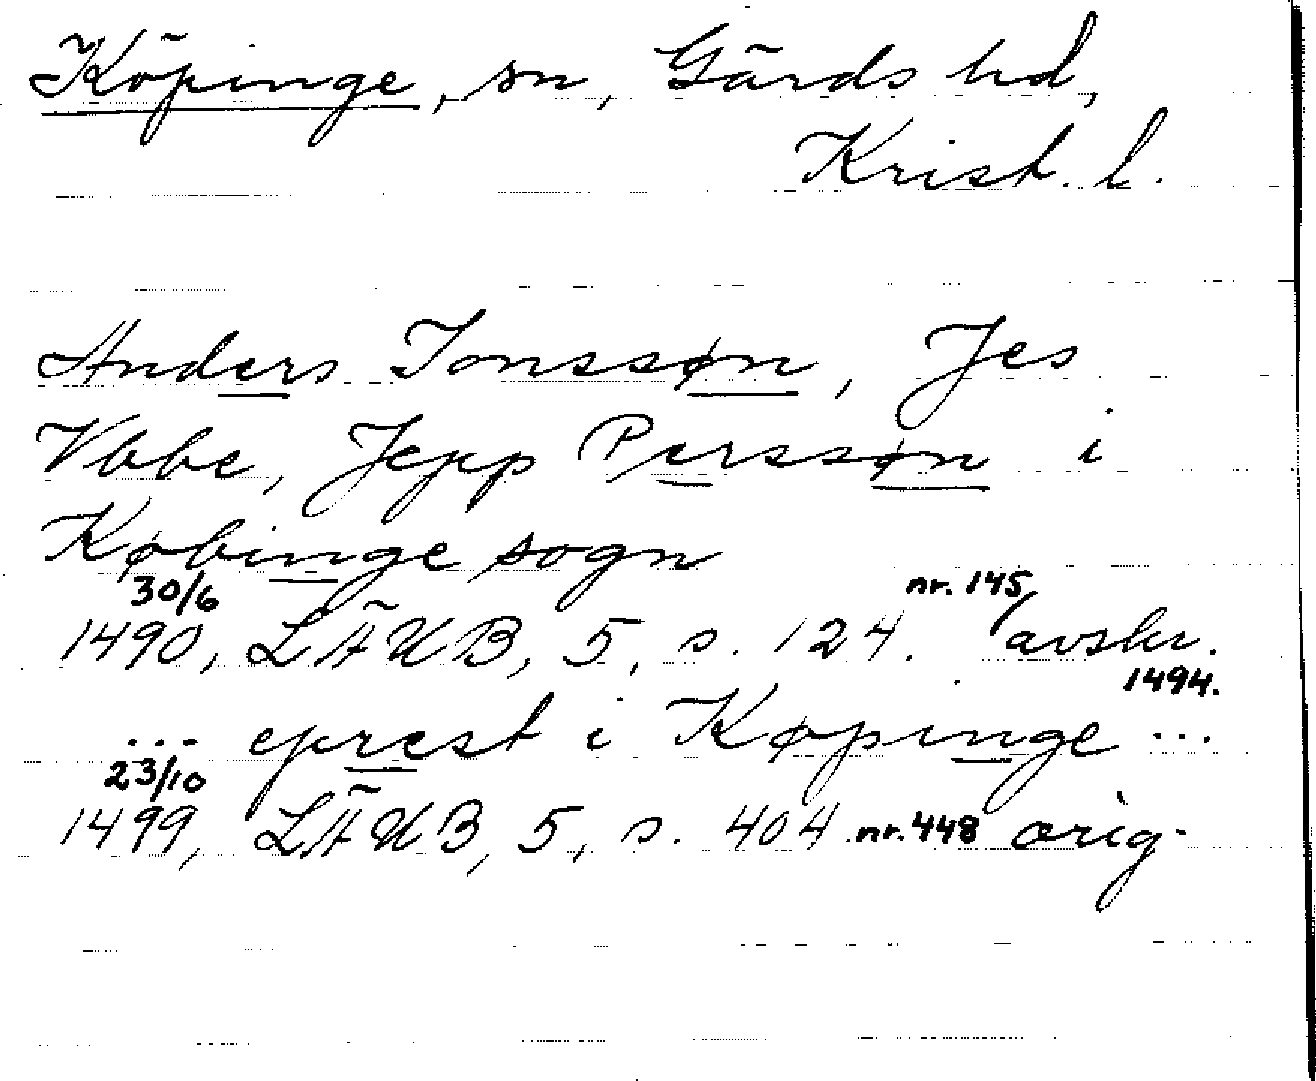 Köpinge, sn, Gärds hd,
Krist. l.
Anders Jonssøn, Jes
Vbbe, Jepp Perssøn i
Købinge sogn
30/6 nr. 145
1490, LÄUB, 5, s. 124. avskr.
1494.
... eprest i Køpinge ...
23/10
1499, LÄUB, 5, s. 404 nr. 448 orig.